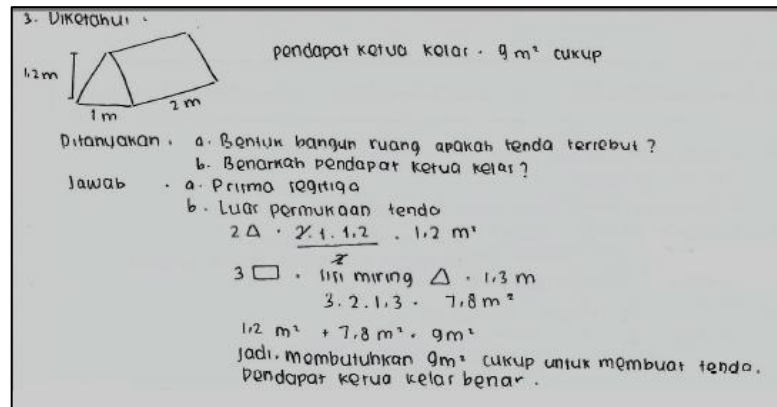 3. Diketahui :
pendapat ketua kelas = 9 m² cukup
1,2 m
1 m
2 m
Ditanyakan : a. Bentuk bangun ruang apakah tenda tersebut ?
b. Benarkah pendapat ketua kelas ?
Jawab : a. Prisma segitiga
b. Luas permukaan tenda
2 △ = 2.1.1,2 = 1,2 m²
2
3 ▭ = sisi miring △ = 1,3 m
3.2.1,3 = 7,8 m²
1,2 m² + 7,8 m² = 9 m²
Jadi, membutuhkan 9m² cukup untuk membuat tenda.
Pendapat ketua kelas benar.